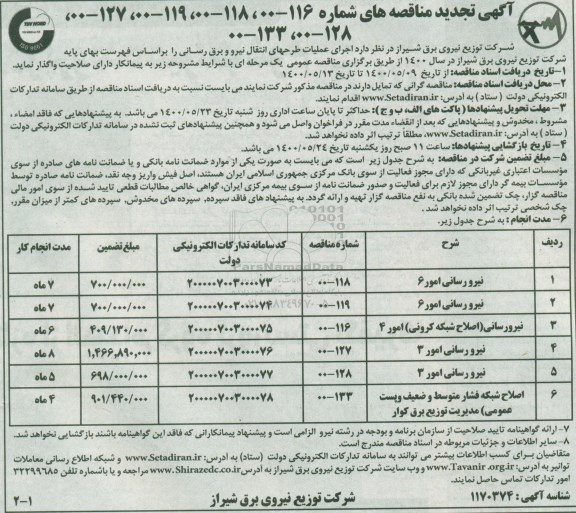 آگهی تجدید مناقصه های شماره ۱۱۶-۰۰، ۱۱۸-۰۰، ۱۱۹-۰۰، ۱۲۷-۰۰،
۱۲۸-۰۰، ۱۳۳-۰۰
شرکت توزیع نیروی برق شیراز در نظر دارد اجرای عملیات طرحهای انتقال نیرو و برق رسانی را براساس فهرست بهای پایه
شرکت توزیع نیروی برق شیراز در سال ۱۴۰۰ از طریق برگزاری مناقصه عمومی یک مرحله ای با شرایط مشروحه زیر به پیمانکار دارای صلاحیت واگذار نماید.
۱- تاریخ دریافت اسناد مناقصه: از تاریخ ۱۴۰۰/۰۵/۰۹ تا تاریخ ۱۴۰۰/۰۵/۱۳
۲- محل دریافت اسناد مناقصه: مناقصه گرانی که تمایل دارند در مناقصه مذکور شرکت نمایند می بایست نسبت به دریافت اسناد مناقصه از طریق سامانه تدارکات
الکترونیکی دولت ( ستاد ) به آدرس: www.Setadiran.ir اقدام نمایند.
۳- مهلت تحویل پیشنهادها ( پاکت های الف، ب و ج): حداکثر تا پایان ساعت اداری روز شنبه تاریخ ۱۴۰۰/۰۵/۲۳ می باشد. به پیشنهادهایی که فاقد امضاء ،
مشروط ، مخدوش و پیشنهادهایی که بعد از انقضاء مدت مقرر در فراخوان واصل می شود و همچنین پیشنهادهای ثبت نشده در سامانه تدارکات الکترونیکی دولت
( ستاد ) به آدرس: www.Setadiran.ir، مطلقاً ترتیب اثر داده نخواهد شد.
۴- تاریخ بازگشایی پیشنهادها: ساعت ۱۱ صبح روز یکشنبه تاریخ ۱۴۰۰/۰۵/۲۴ می باشد.
۵- مبلغ تضمین شرکت در مناقصه: به شرح جدول زیر است که می بایست به صورت یکی از موارد ضمانت نامه بانکی و یا ضمانت نامه های صادره از سوی
مؤسسات اعتباری غیربانکی که دارای مجوز فعالیت از سوی بانک مرکزی جمهوری اسلامی ایران هستند، اصل فیش واریز وجه نقد، ضمانت نامه صادره توسط
مؤسسات بیمه گر دارای مجوز لازم برای فعالیت و صدور ضمانت نامه از سوی بیمه مرکزی ایران، گواهی خالص مطالبات قطعی تایید شده از سوی امور مالی
مناقصه گزار، چک تضمین شده بانکی به نفع مناقصه گزار تهیه و ارائه گردد. به پیشنهاد های فاقد سپرده، سپرده های مخدوش، سپرده های کمتر از میزان مقرر،
چک شخصی ترتیب اثر داده نخواهد شد .
۶- مدت انجام : به شرح جدول زیر.
ردیف شرح شماره مناقصه کد سامانه تدارکات الکترونیکی دولت مبلغ تضمین مدت انجام کار
۱ نیرو رسانی امور ۶ ۱۱۸-۰۰ ۲۰۰۰۰۰۷۰۰۳۰۰۰۰۷۳ ۷۰۰/۰۰۰/۰۰۰ ۷ ماه
۲ نیرو رسانی امور ۶ ۱۱۹-۰۰ ۲۰۰۰۰۰۷۰۰۳۰۰۰۰۷۴ ۷۰۰/۰۰۰/۰۰۰ ۷ ماه
۳ نیرورسانی (اصلاح شبکه کرونی) امور ۴ ۱۱۶-۰۰ ۲۰۰۰۰۰۷۰۰۳۰۰۰۰۷۵ ۴۰۹/۱۳۰/۰۰۰ ۶ ماه
۴ نیرو رسانی امور ۳ ۱۲۷-۰۰ ۲۰۰۰۰۰۷۰۰۳۰۰۰۰۷۶ ۱,۴۶۶,۸۹۰,۰۰۰ ۸ ماه
۵ نیرو رسانی امور ۳ ۱۲۸-۰۰ ۲۰۰۰۰۰۷۰۰۳۰۰۰۰۷۷ ۶۹۸/۰۰۰/۰۰۰ ۵ ماه
۶ اصلاح شبکه فشار متوسط و ضعیف وپست عمومی) مدیریت توزیع برق کوار ۱۳۳-۰۰ ۲۰۰۰۰۰۷۰۰۳۰۰۰۰۷۸ ۹۰۱/۴۴۰/۰۰۰ ۴ ماه
۷- ارائه گواهینامه تایید صلاحیت از سازمان برنامه و بودجه در رشته نیرو الزامی است و پیشنهاد پیمانکارانی که فاقد این گواهینامه باشند بازگشایی نخواهد شد.
۸- سایر اطلاعات و جزئیات مربوطه در اسناد مناقصه مندرج است.
متقاضیان برای کسب اطلاعات بیشتر می توانند به سامانه تدارکات الکترونیکی دولت (ستاد) به آدرس: www.Setadiran.ir و شبکه اطلاع رسانی معاملات
توانیر به آدرس: www.Tavanir.org.ir و وب سایت شرکت توزیع نیروی برق شیراز به آدرس www.Shirazedc.co.ir مراجعه و یا باشماره تلفن ۳۲۲۹۹۶۸۵
امور تدارکات تماس حاصل نمایند.
شناسه آگهی : ۱۱۷۰۳۷۴ شرکت توزیع نیروی برق شیراز ۲-۱